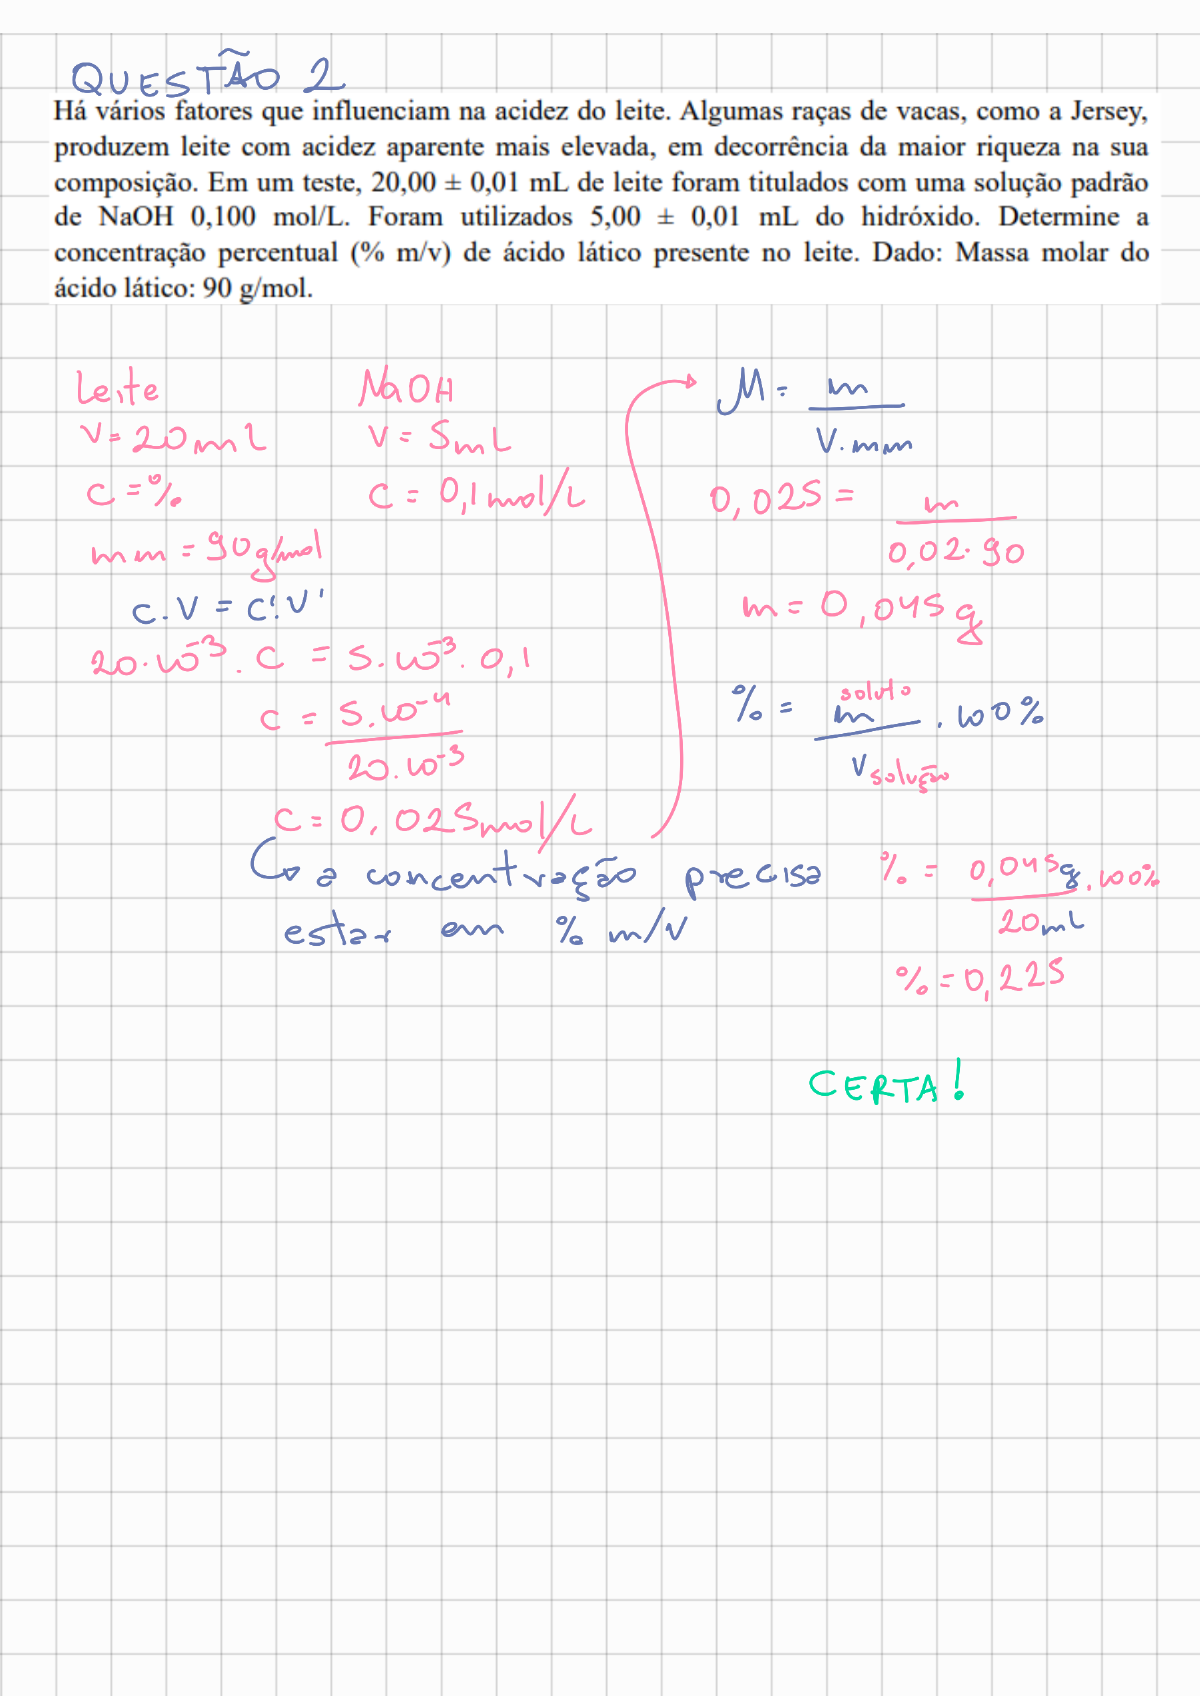 QUESTÃO 2
Há vários fatores que influenciam na acidez do leite. Algumas raças de vacas, como a Jersey,
produzem leite com acidez aparente mais elevada, em decorrência da maior riqueza na sua
composição. Em um teste, 20,00 ± 0,01 mL de leite foram titulados com uma solução padrão
de NaOH 0,100 mol/L. Foram utilizados 5,00 ± 0,01 mL do hidróxido. Determine a
concentração percentual (% m/v) de ácido lático presente no leite. Dado: Massa molar do
ácido lático: 90 g/mol.
Leite
V = 20 mL
C = %
mm = 90 g/mol
NaOH
V = 5 mL
C = 0,1 mol/L
C.V = C'.V'
20.10⁻³ . C = 5.10⁻³ . 0,1
C = 5.10⁻⁴
20.10⁻³
C = 0,025 mol/L
a concentração precisa
estar em % m/v
M = m
V.mm
0,025 = m
0,02.90
m = 0,045 g
% = m soluto . 100%
V solução
% = 0,045g . 100%
20 mL
% = 0,225
CERTA!